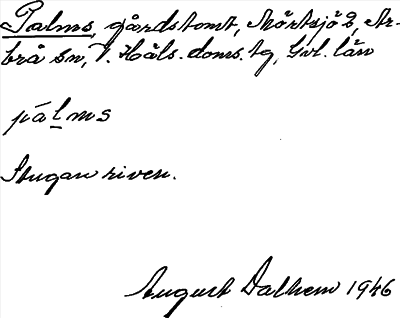 Palms, gårdstomt, Mörtsjö 2, Ar-
brå sn, V. Häls. doms. tg, Gvl. län
pálms
Stugan riven.
August Dalhem 1946